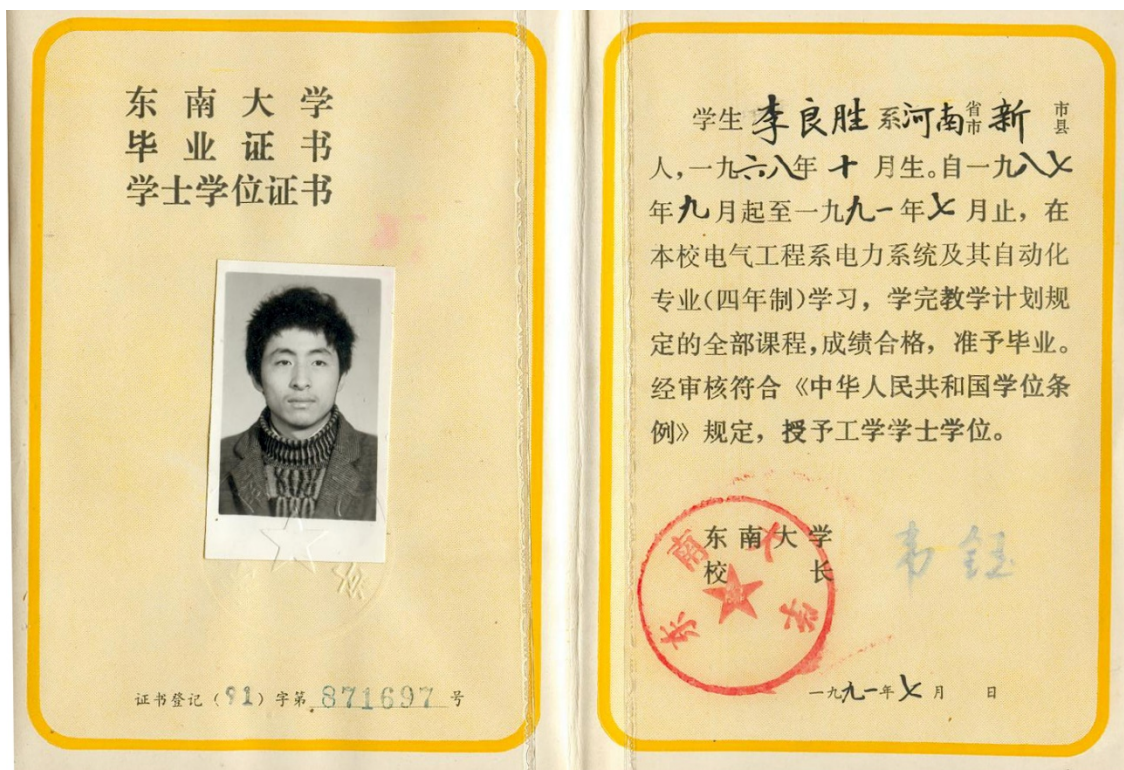 东南大学
毕业证书
学士学位证书
证书登记（91）字第 871697 号
学生李良胜系河南省市新市县
人，一九六八年十月生。自一九八七
年九月起至一九九一年七月止，在
本校电气工程系电力系统及其自动化
专业（四年制）学习，学完教学计划规
定的全部课程，成绩合格，准予毕业。
经审核符合《中华人民共和国学位条
例》规定，授予工学学士学位。
东南大学
校长
韦钰
东南大学
一九九一年七月 日